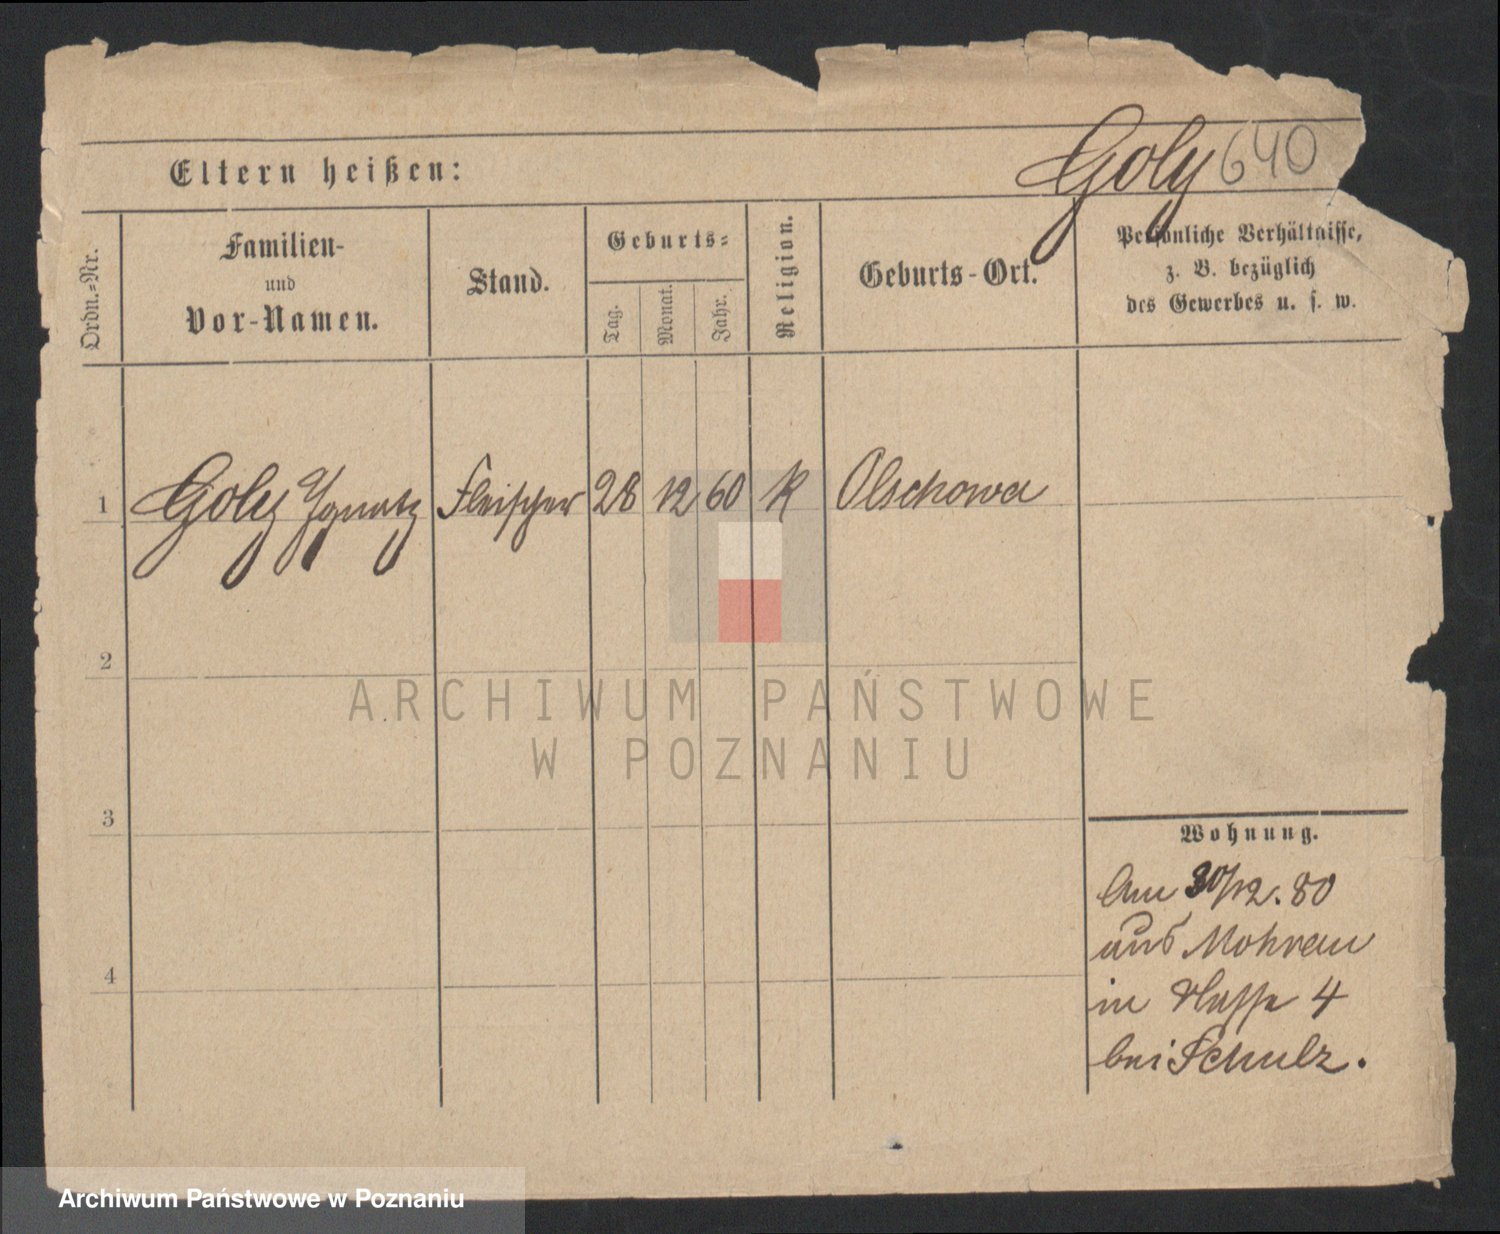 Goly 640
Eltern heißen:
Ordn.-Nr.
Familien-
und
Vor-Namen.
Stand.
Geburts-
Tag.
Monat.
Jahr.
Religion.
Geburts-Ort.
Persönliche Verhältnisse,
z. B. bezüglich
des Gewerbes u. s. w.
1 Goly Ignatz Fleischer 28 12 60 K Olschowa
2
ARCHIWUM PAŃSTWOWE
W POZNANIU
3
Wohnung.
Am 30/12. 80
aus Mohrau
in 4
bei Schulz.
4
Archiwum Państwowe w Poznaniu